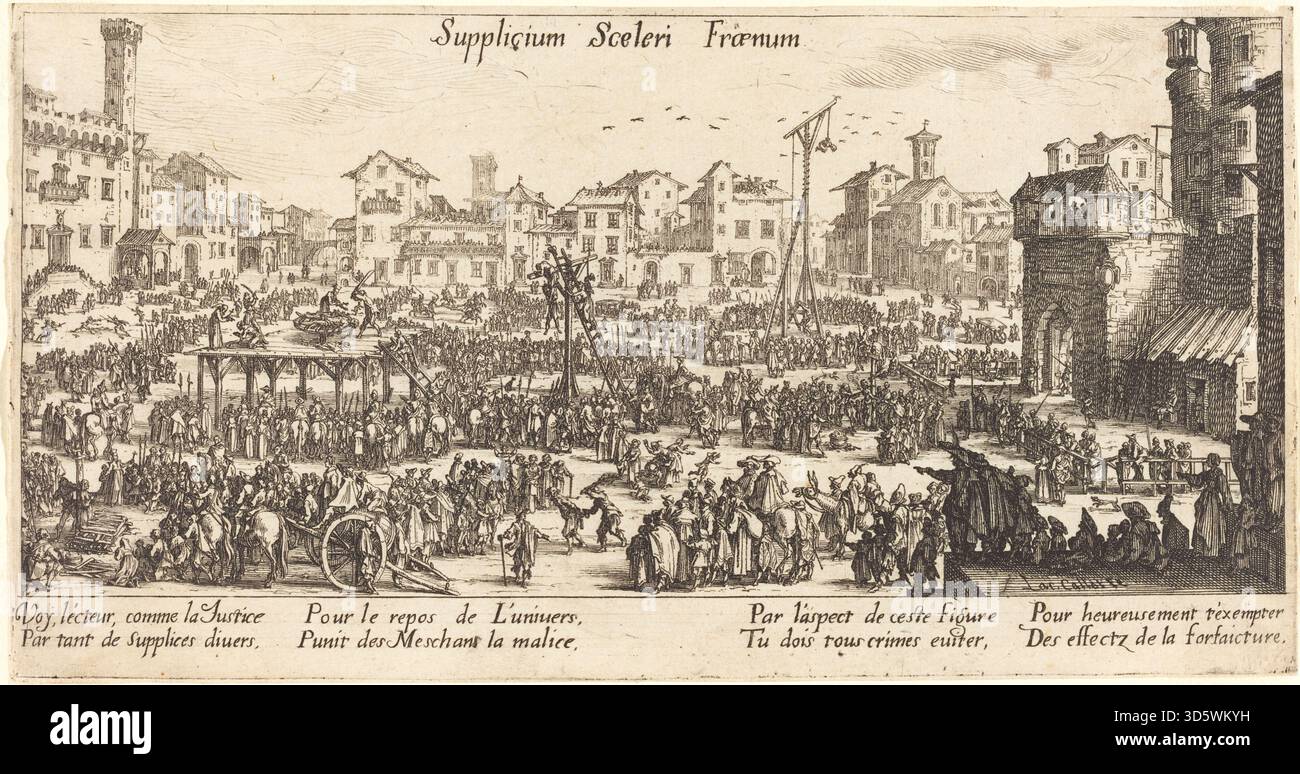 Suppliçium Sceleri Frœnum
Iac. Callot
Voy, lécteur, comme la Justice Pour le repos de L'univers, Par l'áspect de ceste figure Pour heureusement t'éxempter
Par tant de supplices divers, Punit des Meschans la malice, Tu dois tous crimes euiter, Des effectz de la forfaicture.
alamy
alamy
Image ID: 3D5WKYH
www.alamy.com